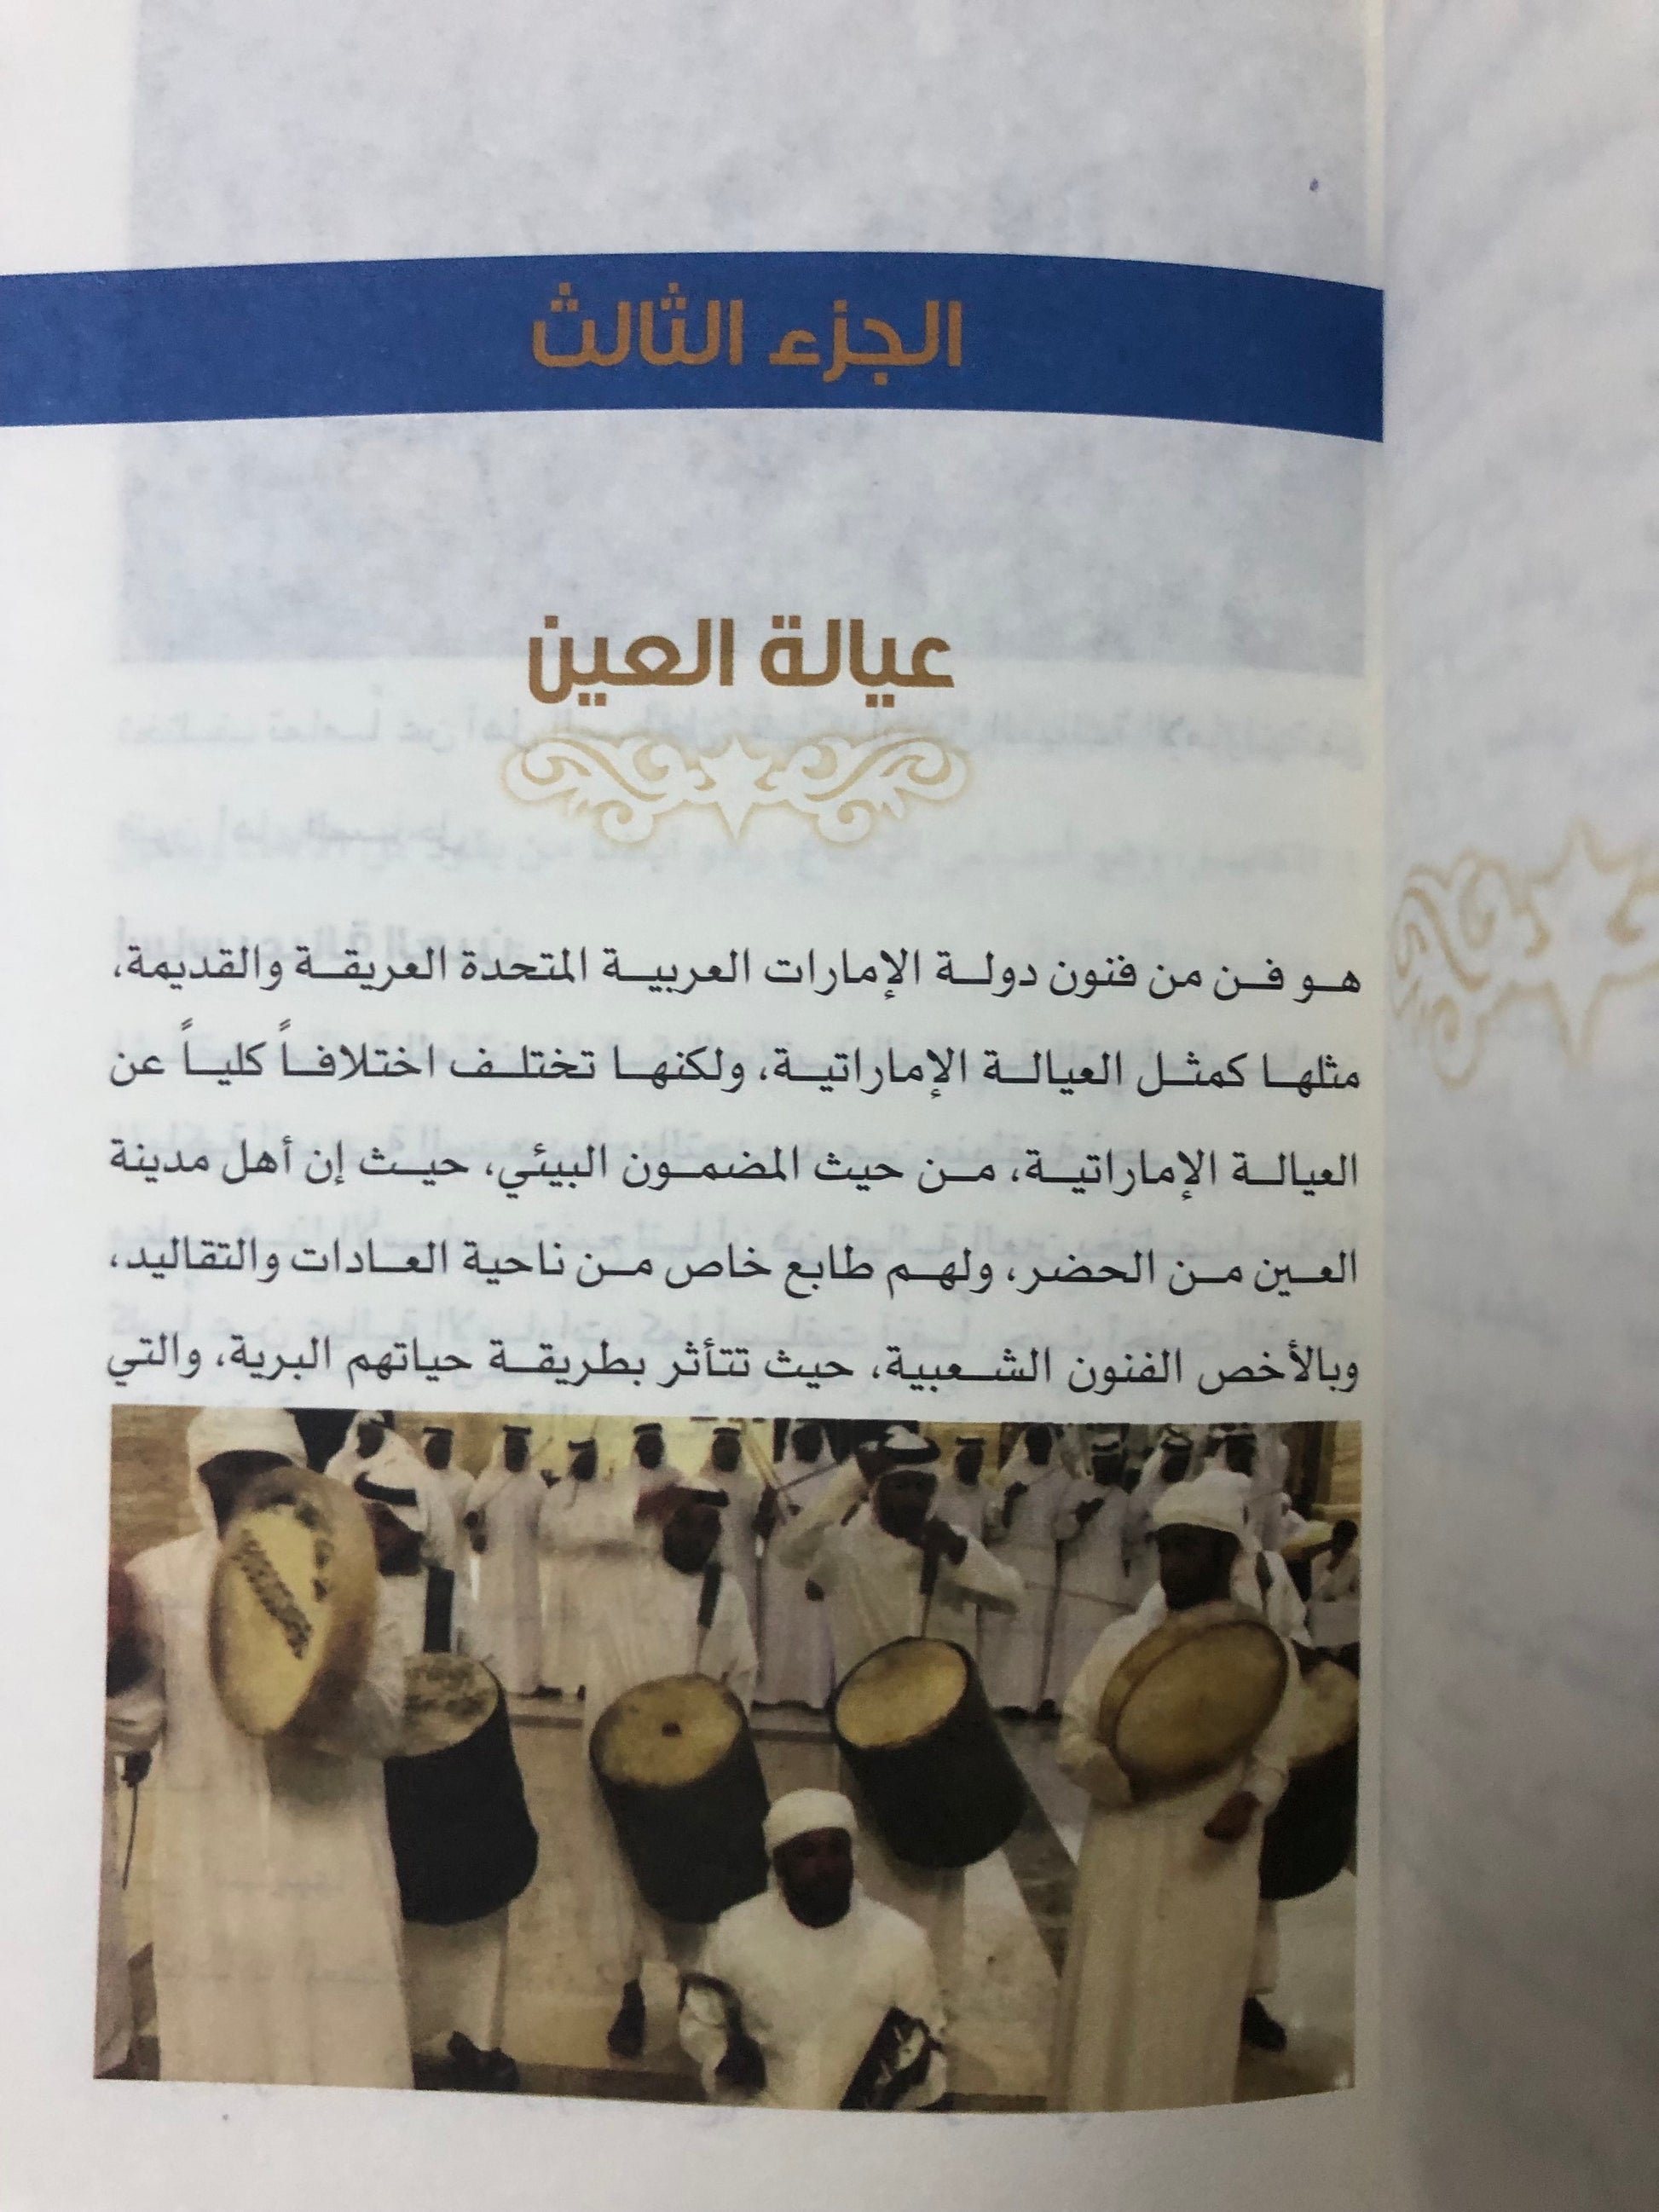 الجزء الثالث
عيالة العين
هو فن من فنون دولة الإمارات العربية المتحدة العريقة والقديمة،
مثلها كمثل العيالة الإماراتية، ولكنها تختلف اختلافاً كلياً عن
العيالة الإماراتية، من حيث المضمون البيئي، حيث إن أهل مدينة
العين من الحضر، ولهم طابع خاص من ناحية العادات والتقاليد،
وبالأخص الفنون الشعبية، حيث تتأثر بطريقة حياتهم البرية، والتي